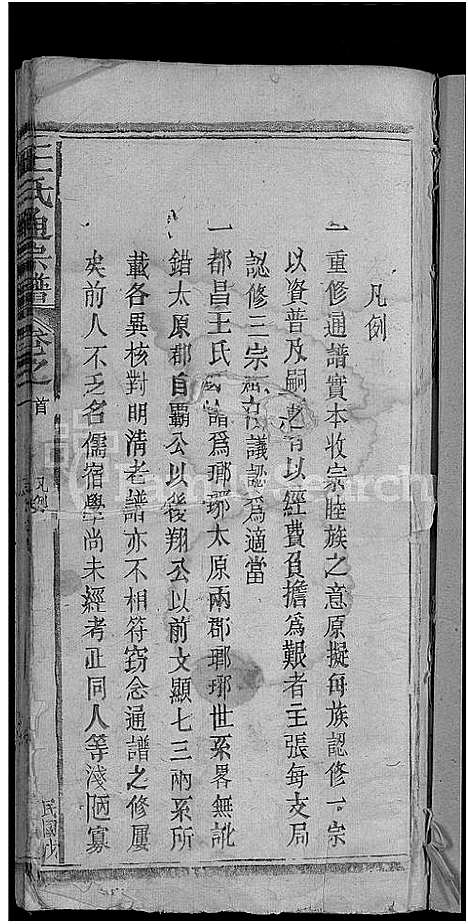 凡例
一重修通譜實本收宗睦族之意原擬每族認修一宗
以資普及嗣有以經費負擔為艱者主張每支局
認修三宗議認為適當
一都昌王氏譜爲瑯琊太原兩郡瑯琊世系畧無訛
錯太原郡自霸公以後翔公以前文顯七三兩系所
載各異核對明清老譜亦不相符窃念通譜之修屢
矣前人不乏名儒宿學尚未經考正同人等淺陋寡
王氏通宗譜
卷之首
凡例
民國戊